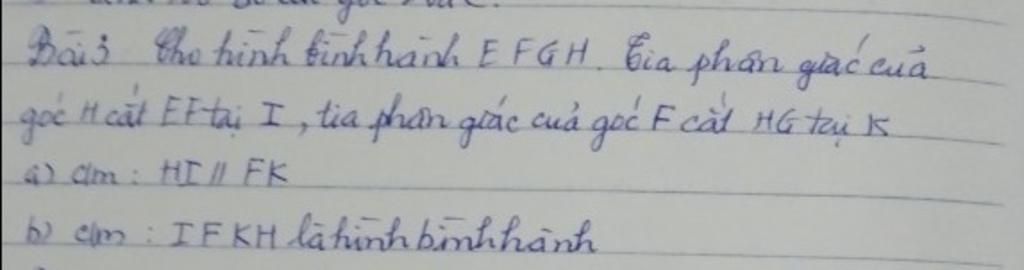 Bài 3 Cho hình bình hành EFGH. Tia phân giác của
góc H cắt EF tại I, tia phân giác của góc F cắt HG tại K
a) c/m : HI // FK
b) c/m : IFKH là hình bình hành